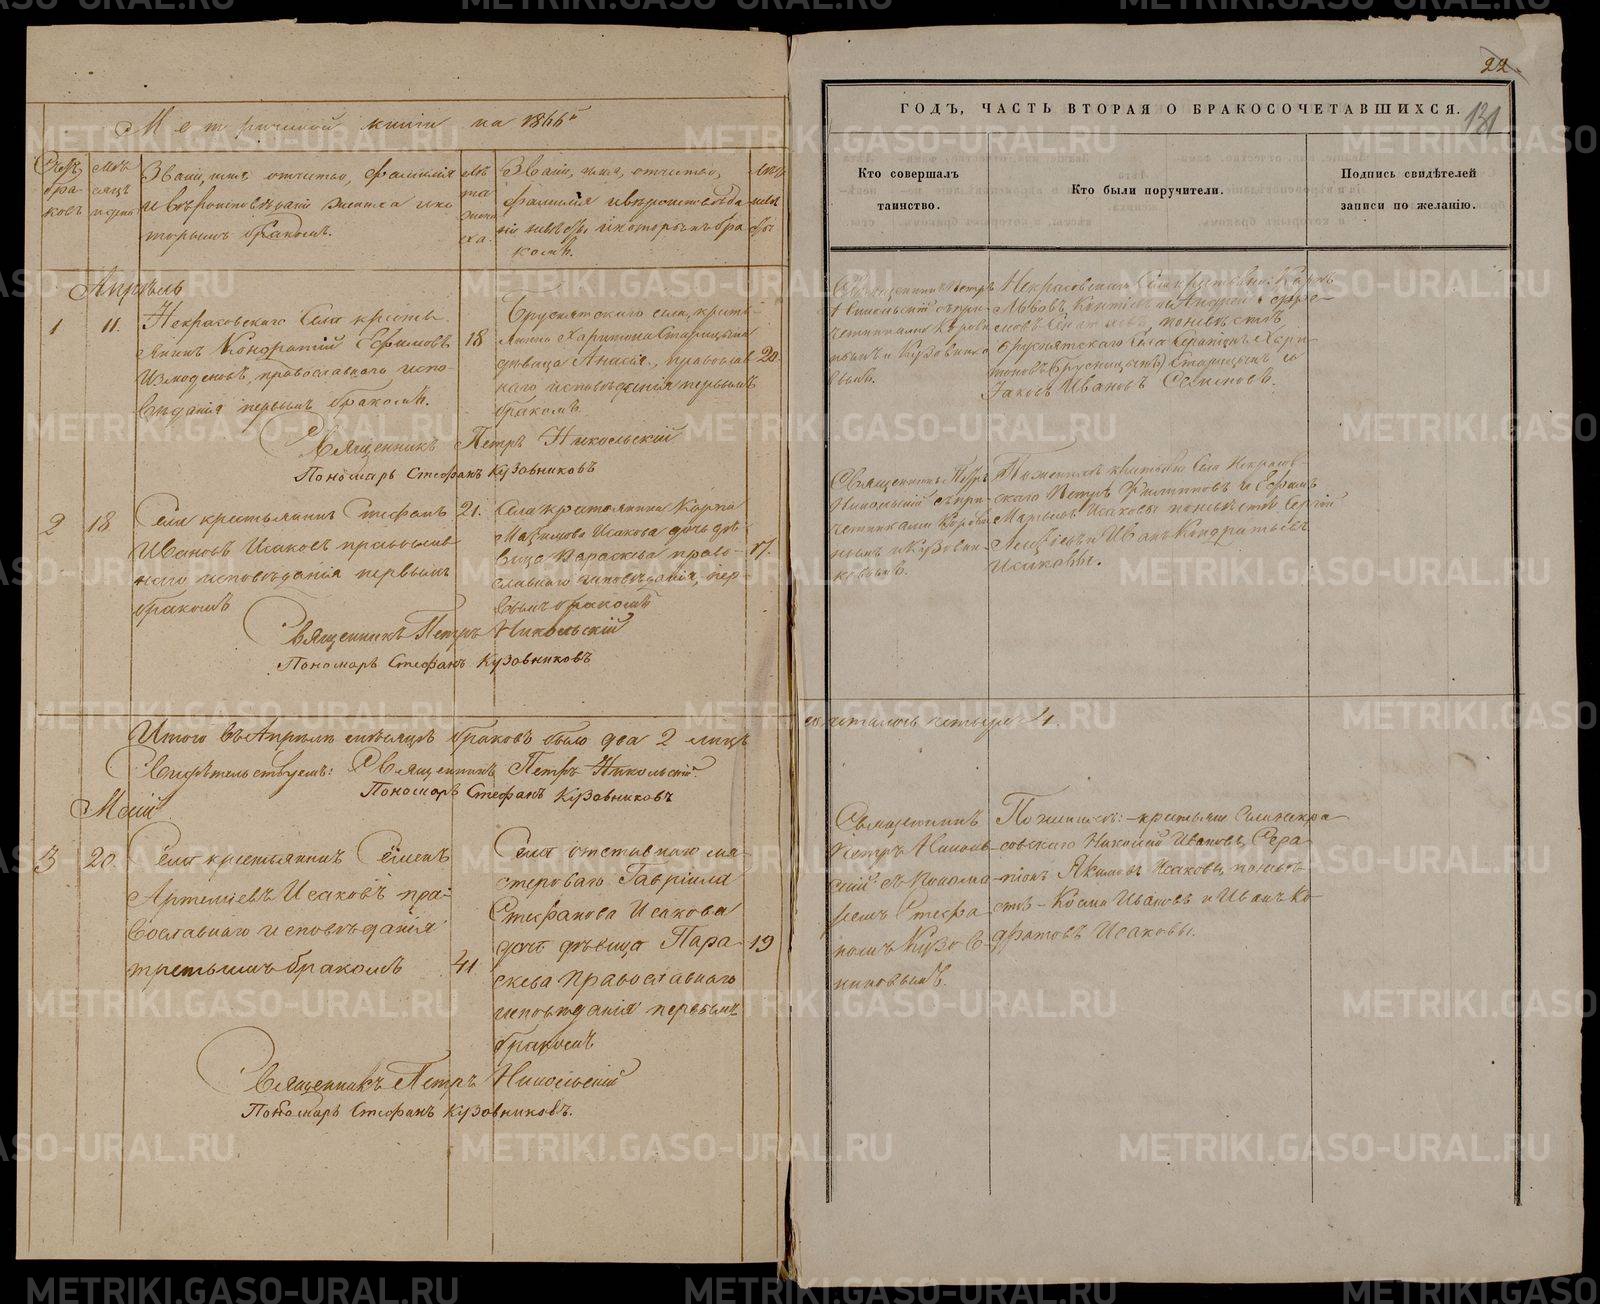 Метрической книги на 1866й
Счетъ бра-
ковъ
Мѣ-
сяцъ
и день
Званіе, имя, отчество, фамилія
и вѣроисповѣданіе жениха и ко-
торымъ бракомъ.
Лѣ
та
жени
ха.
Званіе, имя, отчество,
фамилія и вѣроисповѣда
ніе невѣсты и которымъ бра
комъ.
Лѣта
невѣ
сты
Апрѣль
1
11.
Некрасовскаго села кресть-
янинъ Кондратій Ефимовъ
Измоденовъ, православнаго испо-
вѣданія первымъ бракомъ.
18
Бруснятскаго села, кресть-
янина Харитона Старицына
дѣвица Анисія, православ
наго исповѣданія первымъ
бракомъ
20
Священникъ Петръ Никольскій
Пономарь Стефанъ Кузовниковъ
2
18
Села крестьянинъ Стефанъ
Ивановъ Исаковъ православ
наго исповѣданія первымъ
бракомъ
21.
Села крестьянина Карпа
Максимова Исакова дочь дѣ
вица Параскева право-
славнаго исповѣданія, пер-
вымъ бракомъ
17.
Священникъ Петръ Никольскій
Пономарь Стефанъ Кузовниковъ
Итого въ Апрѣлѣ мѣсяцѣ браковъ было два 2 лицъ
Свидѣтельствуемъ: Священникъ Петръ Никольскій.
Пономарь Стефанъ Кузовниковъ
Маій
3
20.
Села крестьянинъ Семенъ
Артеміевъ Исаковъ пра-
вославнаго исповѣданія
третьимъ бракомъ
41.
Села отставнаго ма-
стероваго Гавріила
Стефанова Исакова
дочь дѣвица Пара-
скева православнаго
исповѣданія первымъ
бракомъ
19
Священникъ Петръ Никольскій
Пономарь Стефанъ Кузовниковъ.
22.
131
ГОДЪ, ЧАСТЬ ВТОРАЯ О БРАКОСОЧЕТАВШИХСЯ.
Кто совершалъ
таинство.
Кто были поручители.
Подпись свидѣтелей
записи по желанію.
Священникъ Петръ
Никольскій съ при-
четниками
и Кузовнико
вымъ.
Некрасовскаго села крестьяне: Карпъ
Андрей Ефре-
мовъ по невѣстѣ
Бруснятскаго села Харi-
тоновъ Старицынъ и
Іаковъ Ивановъ
Священникъ Петръ
Никольскій съ при-
четниками
и Кузовни-
ковымъ.
По женихѣ крестьяне села Некрасов-
скаго Петръ Филипповъ и Ефимъ
Исаковы по невѣстѣ Сергій
и Иванъ Кондратьевъ
Исаковы.
сочеталось четыре 4.
Священникъ
Петръ Николь-
скій съ понома
ремъ Стефа
номъ Кузов-
никовымъ.
По женихѣ: крестьяне села Некра
совскаго Николай Ивановъ, Сера-
піонъ Якимовъ Исаковы, по невѣ-
стѣ - Козма Ивановъ и Иванъ Ко-
дратовъ Исаковы.
METRIKI.GASO-URAL.RU